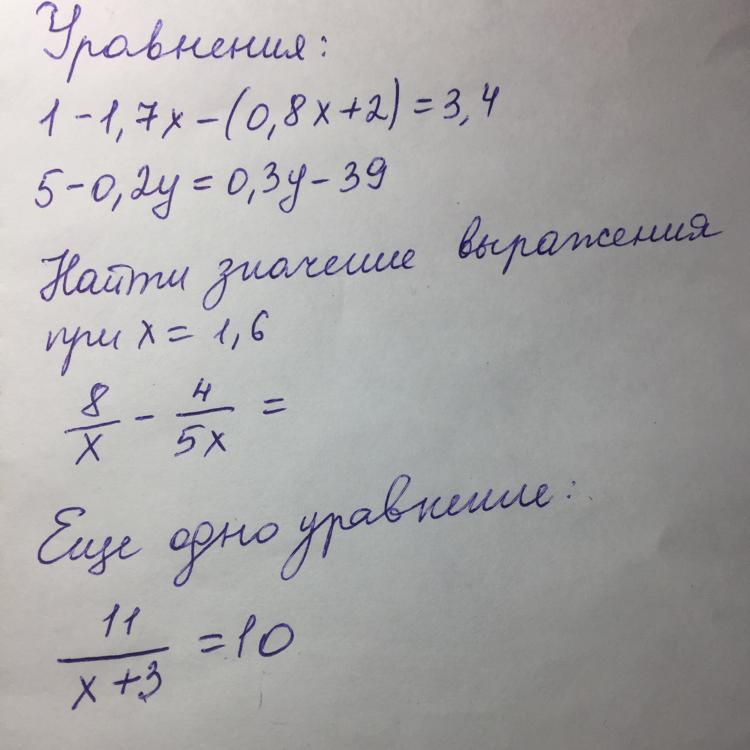 Уравнения:
1-1,7x-(0,8x+2)=3,4
5-0,2y=0,3y-39
Найти значение выражения
при x=1,6
8/x - 4/5x =
Еще одно уравнение:
11/x+3 =10